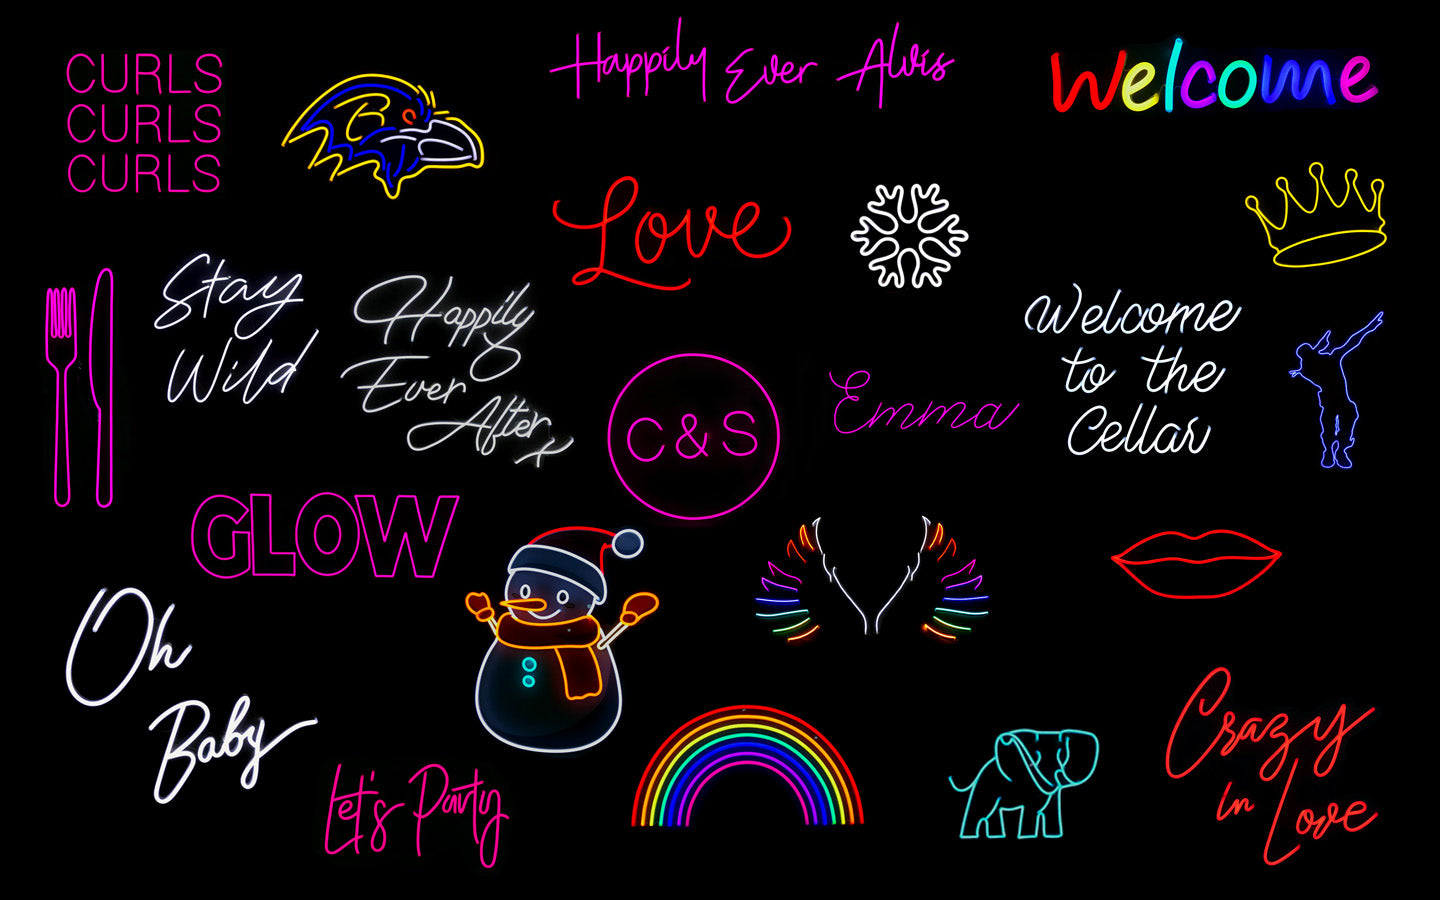 CURLS
CURLS
CURLS
B
Happily Ever Alvis
Welcome
Love
Stay
Wild
Happily
Ever
After x
C & S
Emma
Welcome
to the
Cellar
GLOW
Oh
Baby
Let's Party
Crazy
in
Love